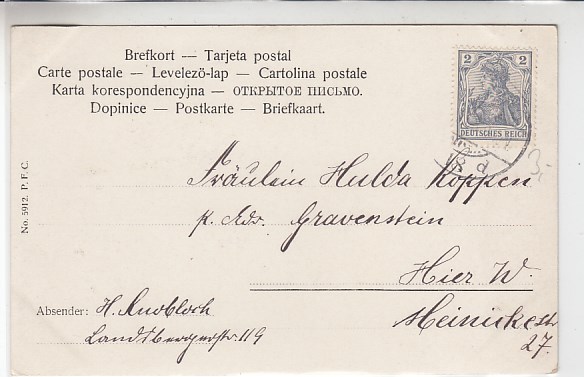 Brefkort — Tarjeta postal
Carte postale — Levelezö-lap — Cartolina postale
Karta korespondencyjna — ОТКРЫТОЕ ПИСЬМО.
Dopinice — Postkarte — Briefkaart.
2 2
DEUTSCHES REICH
No. 5912. P. F. C.
3,-
Fräulein Hulda Koppen
p. Adr. Gravenstein
Hier W.
Heinickestr
27.
Absender: H. Knobloch
Landsbergerstr. 119